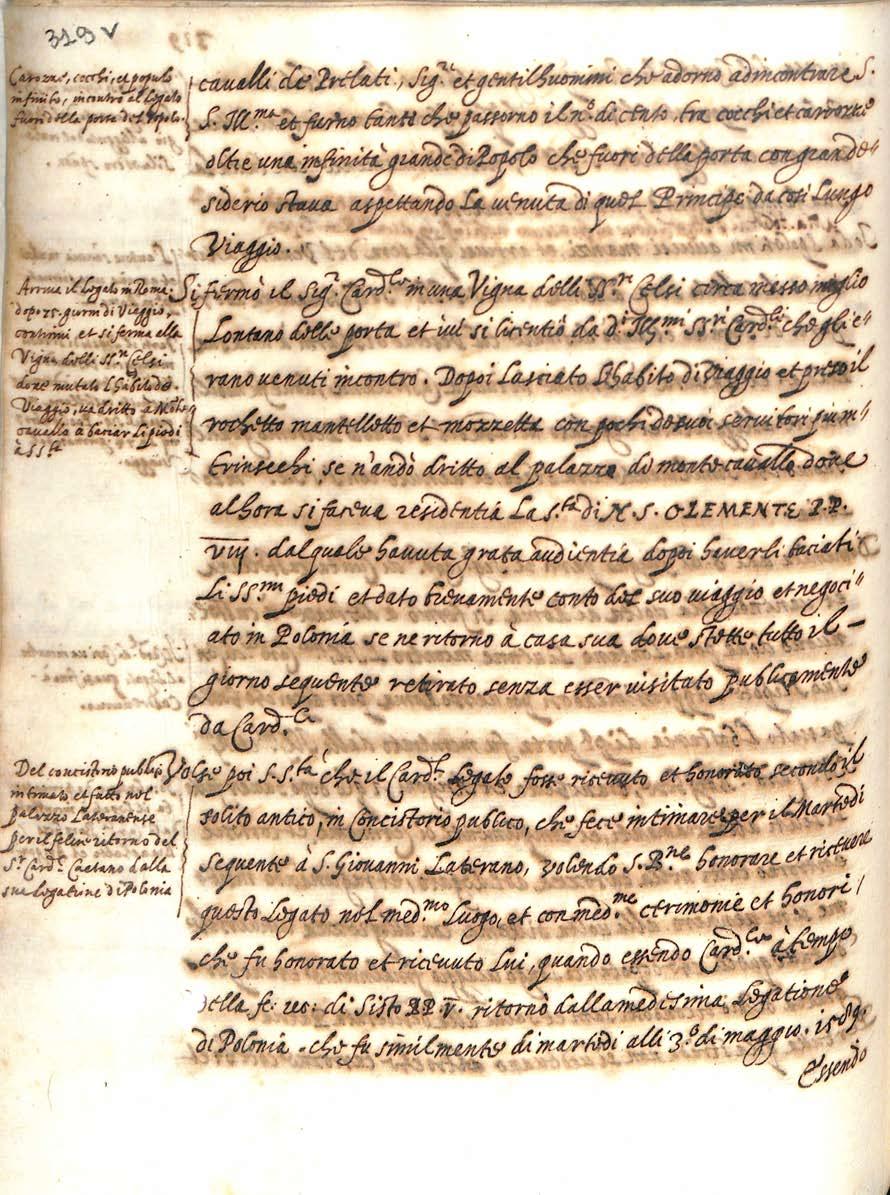 319 v
Carozze, cocchi, et populo
infinito, incontro al Legato
fuori della porta del Popolo.
cavalli de Prelati, Sig.ri et gentilhuomini che adorno ad incontrare S.
S. Ill.ma et furno tanti che passorno il n.o di cento, tra cocchi et carozze
oltre una infinità grande di Popolo che fuori della porta con gran de=
siderio stava aspettando La venuta di quel Principe da così Lungo
Viaggio.
Arriva il Legato in Roma
dopo 75. giorni di Viaggio,
continui et si ferma alla
Vigna delli SS.ri Celsi
dove mutato l'habito de
Viaggio, va dritto à Monte
cavallo à baciar Li piedi
à S S.ta
Si fermò il Sig.r Card.le in una Vigna delli SS.ri Celsi circa mezzo miglio
Lontano della porta et ivi si licentiò da d.i Ill.mi SS.ri Card.li che gli e=
rano venuti incontro. Dopoi Lasciato L'habito di viaggio et preso il
rochetto mantelletto et mozzetta con pochi de suoi servitori piu in=
trinsechi se n'andò dritto al palazzo di monte cavallo dove
alhora si faceva residentia La S.ta di N. S. CLEMENTE P.P.
VIII. dal quale havuta grata audientia dopoi haverli baciati
Li SS.mi piedi et dato brevamente conto del suo viaggio et negoci=
ato in Polonia se ne ritorno à casa sua dove stette tutto il –
giorno sequente retirato senza esser visitato publicamente
da Card.li
Del concistorio publico
intimato et fatto nel
palazzo Lateranense
per il felice ritorno del
S.r Card.l Caetano dalla
sua Legatione di Polonia
Volse poi S. S.tà che il Card.l Legato fosse ricevuto et honorato secondo il
solito antico, in Concistorio publico, che fece intimare per il Martedi
sequente à S. Giovanni Laterano, volendo S. B.ne honorare et ricevere
questo Legato nel med.mo Luogo, et con med.me cerimonie et honori
che fu honorato et ricevuto Lui, quando essendo Card.le à tempo
della fe: rec: di Sisto PP V. ritornò dalla medesima Legatione
di Polonia . che fu similmente di martedi alli 3.o di maggio. 1589.
Essendo